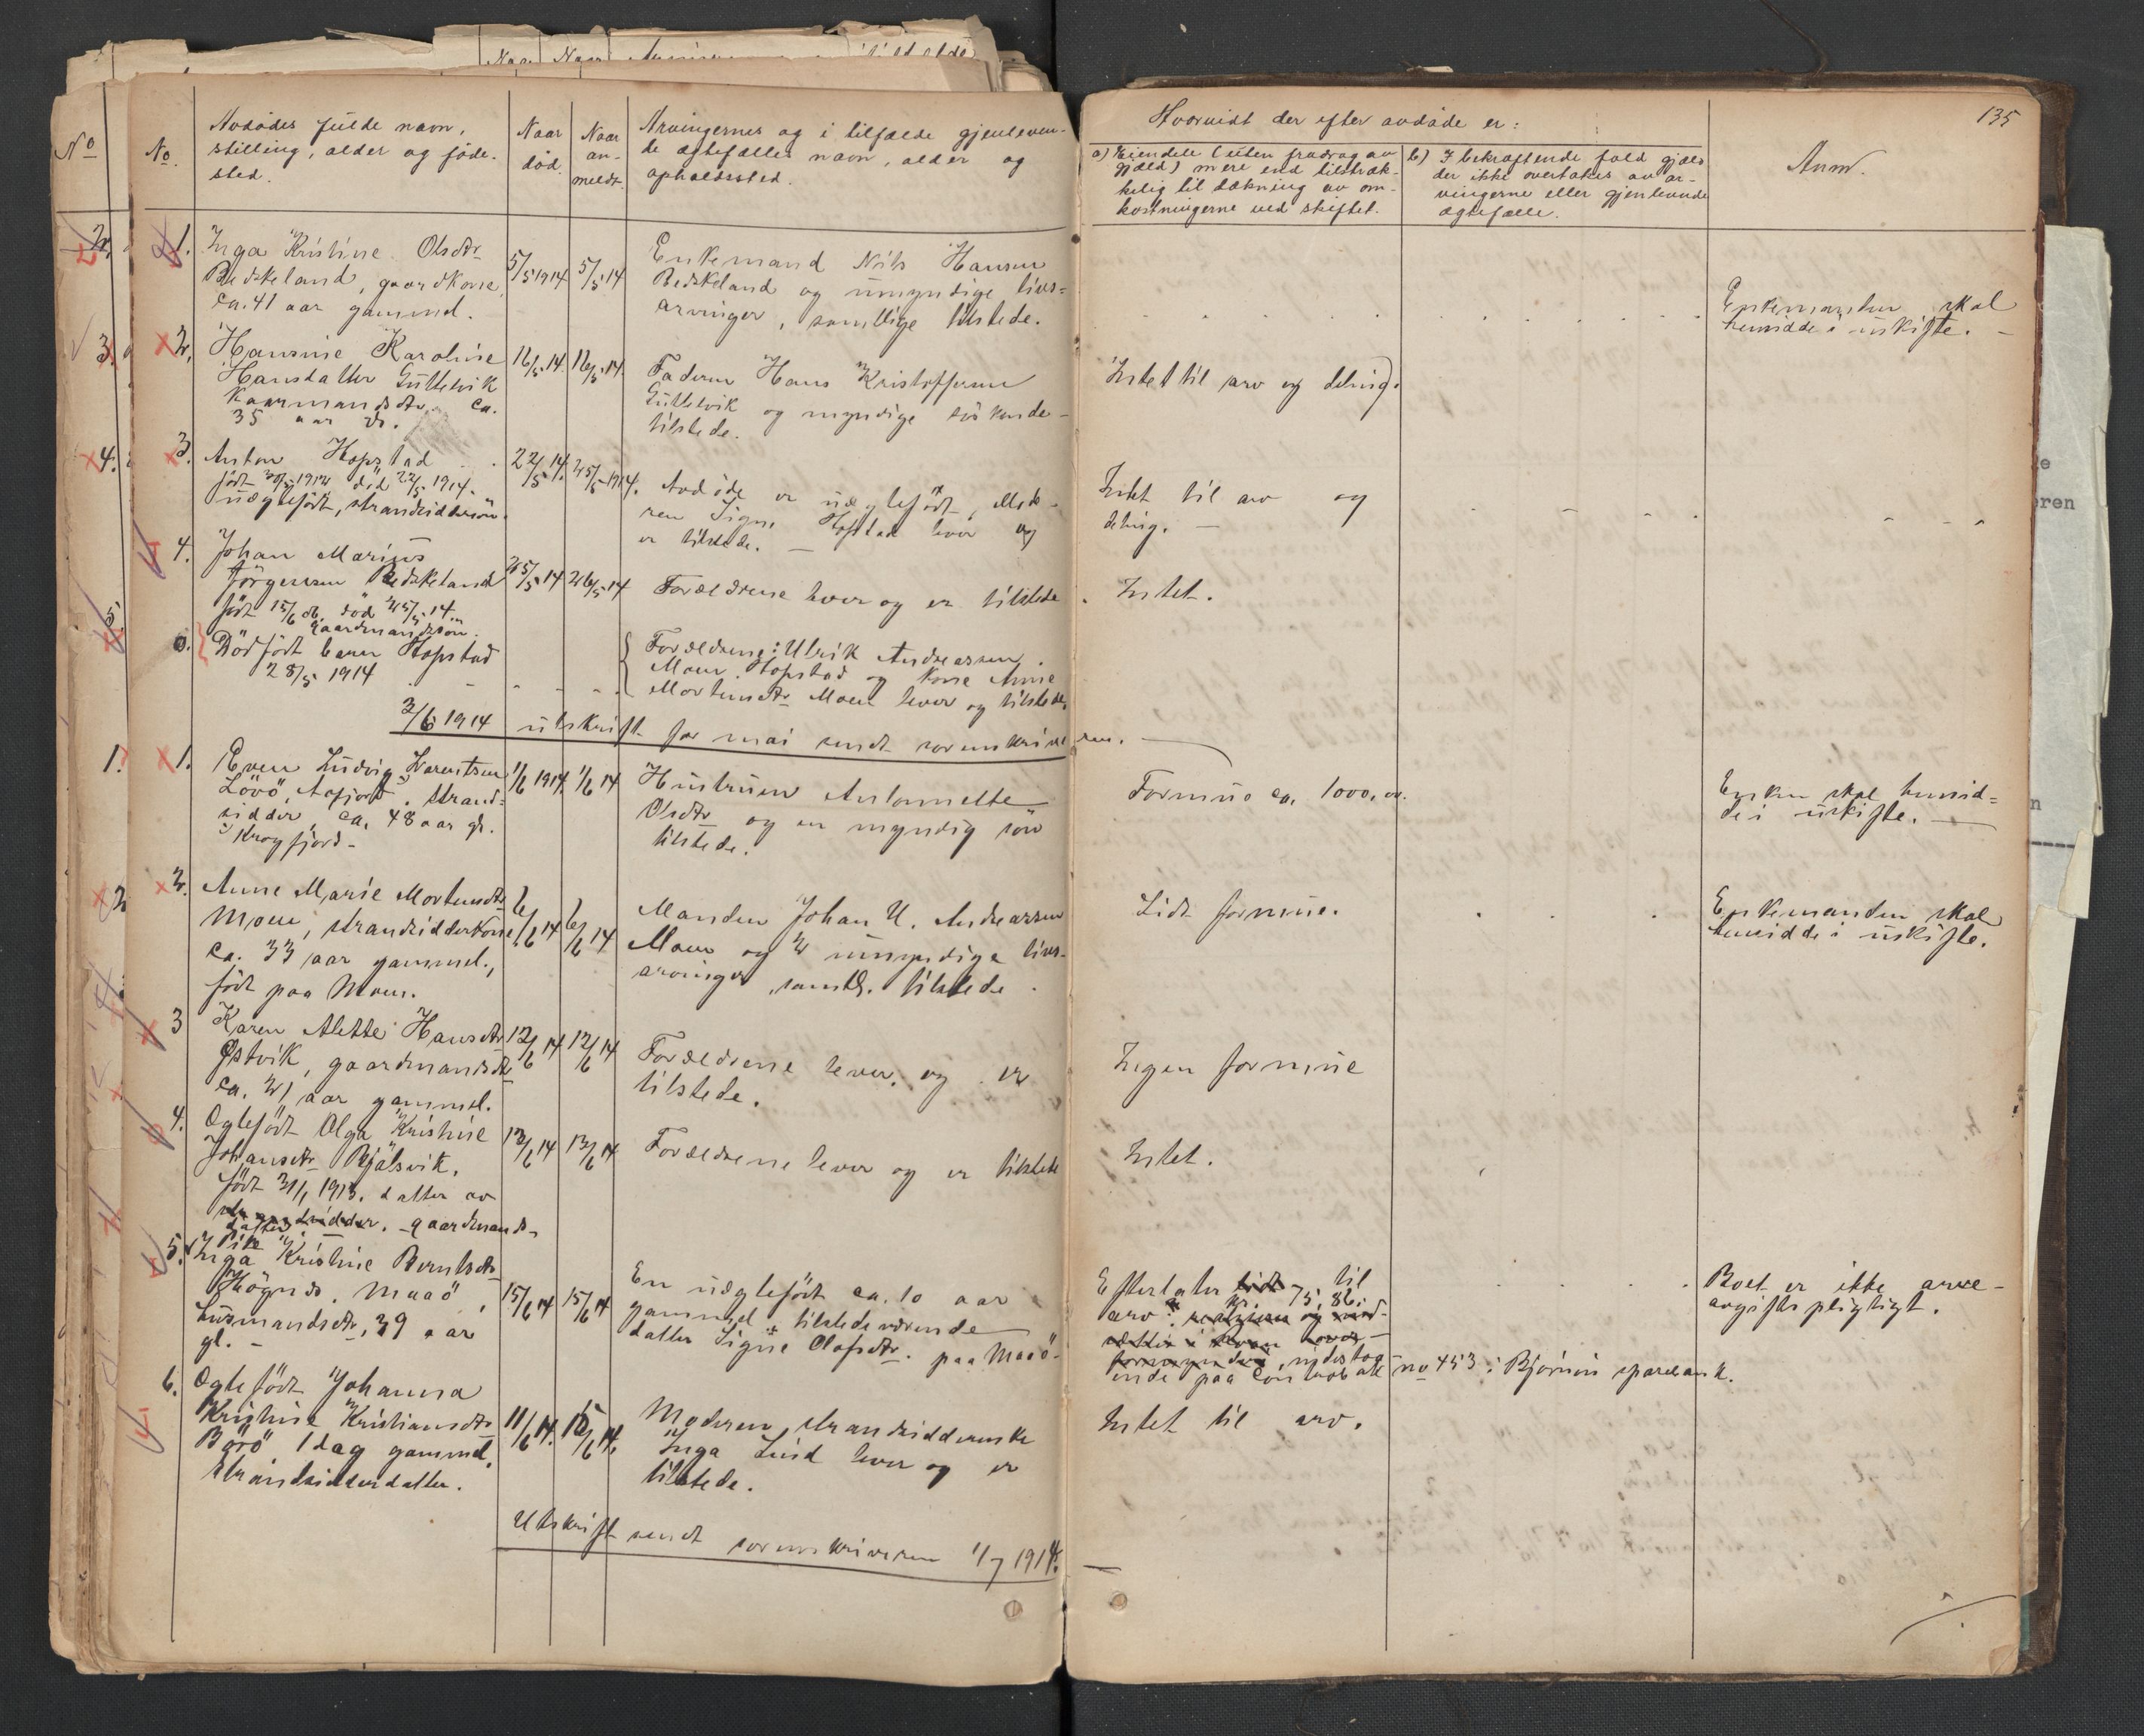 135
No
No.
Avdødes fulde navn,
stilling, alder og føde-
sted.
Naar
død.
Naar
an-
meldt.
Arvingernes og i tilfælde gjenleven-
de ægtefælles navn, alder og
opholdssted.
Hvorvidt der efter avdøde er:
a) Eiendele (uten fradrag av
gjæld) mere end tilstræk-
kelig til dækning av om-
kostningerne ved skiftet.
b) I bekræftende fald gjæld
der ikke overtakes av ar-
vingerne eller gjenlevende
ægtefælle.
Anm.
1. Inga Kristine Olsdtr
Bedskeland, gaardkone,
ca. 41 aar gammel.
5/5 1914
5/5 14
Enkemand Nils Hansen
Bedskeland og umyndige livs-
arvinger, samtlige tilstede.
Enkemanden skal
hensidde i uskifte. –
2. Hansine Karoline
Hansdatter Guttelvik
Kaarmandsdtr. ca.
35 aar
16/5 14.
16/5 14.
Faderen Hans Kristoffersen
Guttelvik og myndige søskende
tilstede.
Intet til arv og deling.
3. Anton Hopstad
født 30/3 1914 død 22/5 1914.
uægtefødt, strandsiddersøn.
22/5 14.
25/5 1914.
Avdøde er uægtefødt, Mode-
ren Signe Hopstad lever og
er tilstede. –
Intet til arv og
deling. –
4. Johan Marius
Jørgensen Bedskeland
født 15/6 06, død 25/5 14.
gaardmandssøn.
25/5 14
26/5 14
Forældrene lever og er tilstede.
Intet.
0. Dødfødt barn Hopstad
28/5 1914
Forældrene: Ulrik Andreassen
Moen Hopstad og kone Anne
Mortensdtr Moen lever og tilstede.
2/6 1914 utskrift for mai sendt sorenskriveren. –
1. Even Ludvig Larentsen
Lövö, Aafjord. Strand-
sidder, ca. 48 aar gl.
Krogfjord –
1/6 1914.
1/6 14
Hustruen Antonette
Olsdtr og en myndig søn
tilstede.
Formue ca. 1000,00.
Enken skal hensid-
de i uskifte. –
2. Anne Marie Mortensdtr
Moen, strandsidderkone
ca. 33 aar gammel,
født paa Moen.
6/6 14
6/6 14
Manden Johan U. Andreassen
Moen og 2 umyndige livs-
arvinger, samtl. tilstede.
Lidt formue.
Enkemanden skal
hensidde i uskifte.
3 Karen Alette Hansdtr
Østvik, gaardmandsdtr
ca. 21 aar gammel.
12/6 14
12/6 14
Forældrene lever og er
tilstede.
Ingen formue
4. Ægtefødt Olga Kristine
Johansdtr Bjälsvik,
født 31/1 1913, datter av
strandsidder. – gaardmands-
datter
13/6 14
13/6 14
Forældrene lever og er tilstede
Intet.
5. Pike
Inga Kristine Berntsdtr
Högnes, Maaö,
husmandsdtr, 39 aar
gl. –
15/6 14
15/6 14
En uægtefødt ca. 10 aar
gammel, tilstedeværende
datter Signe Olafsdtr. paa Maaö –
Efterlater lidt til
arv kr. 75,86,
indestaa-
ende paa Contrabok no 453 i Bjørnør sparebank.
Boet er ikke arve-
avgiftspligtigt.
6. Ægtefødt Johanna
Kristine Kristiansdtr
Børö 1 dag gammel,
Strandsidderdatter.
11/6 14.
15/6 14.
Moderen, strandsidderenke
Inga Lind lever og er
tilstede.
Intet til arv.
Utskrift sendt sorenskriveren 1/7 1914. –